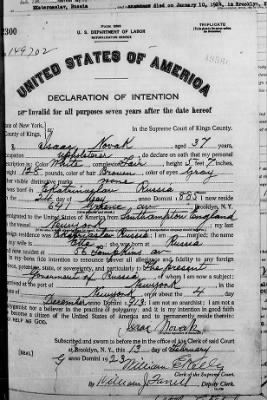 Ekaterinoslav, Russia
died on January 10, 1924, in Brooklyn,
2300
Form 2203
TRIPLICATE
U. S. DEPARTMENT OF LABOR
NATURALIZATION SERVICE
149702
UNITED STATES OF AMERICA
DECLARATION OF INTENTION
Invalid for all purposes seven years after the date hereof
State of New York
County of Kings,
In the Supreme Court of Kings County.
Isaac Novak aged 37 years,
occupation upholsterer do declare on oath that my personal
description is: Color White, complexion Fair height 5 feet 7 inches,
weight 145 pounds, color of hair Brown color of eyes Gray
other visible distinctive marks none
Russia
on the 24 day of May anno Domini 1885 now
Brooklyn, N.Y.
emigrated to the United States of America from Southampton England
my last
foreign residence was Russia I am married; the name
wife is she was born at Russia
now resides at 56 Tompkins av
bona fide intention to renounce forever all allegiance and fidelity to any foreign
prince, potentate, state, or sovereignty, and particularly to The present
Government of Russia of whom I am now a subject;
arrived at the port of New York in the
of New York on or about the 4 day
December anno Domini 1913: I am not an anarchist; I am not a
polygamist nor a believer in the practice of polygamy; and it is my intention in good faith
to become a citizen of the United States of America and to permanently reside therein:
SO HELP ME GOD.
Isaac Novak
Subscribed and sworn to before me in the office of the Clerk of said Court
[SEAL]
at Brooklyn, N.Y., this 13 day of February
anno Domini 1923
William E Kelly
Clerk of the Supreme Court.
By William J. Farrell, Deputy Clerk.